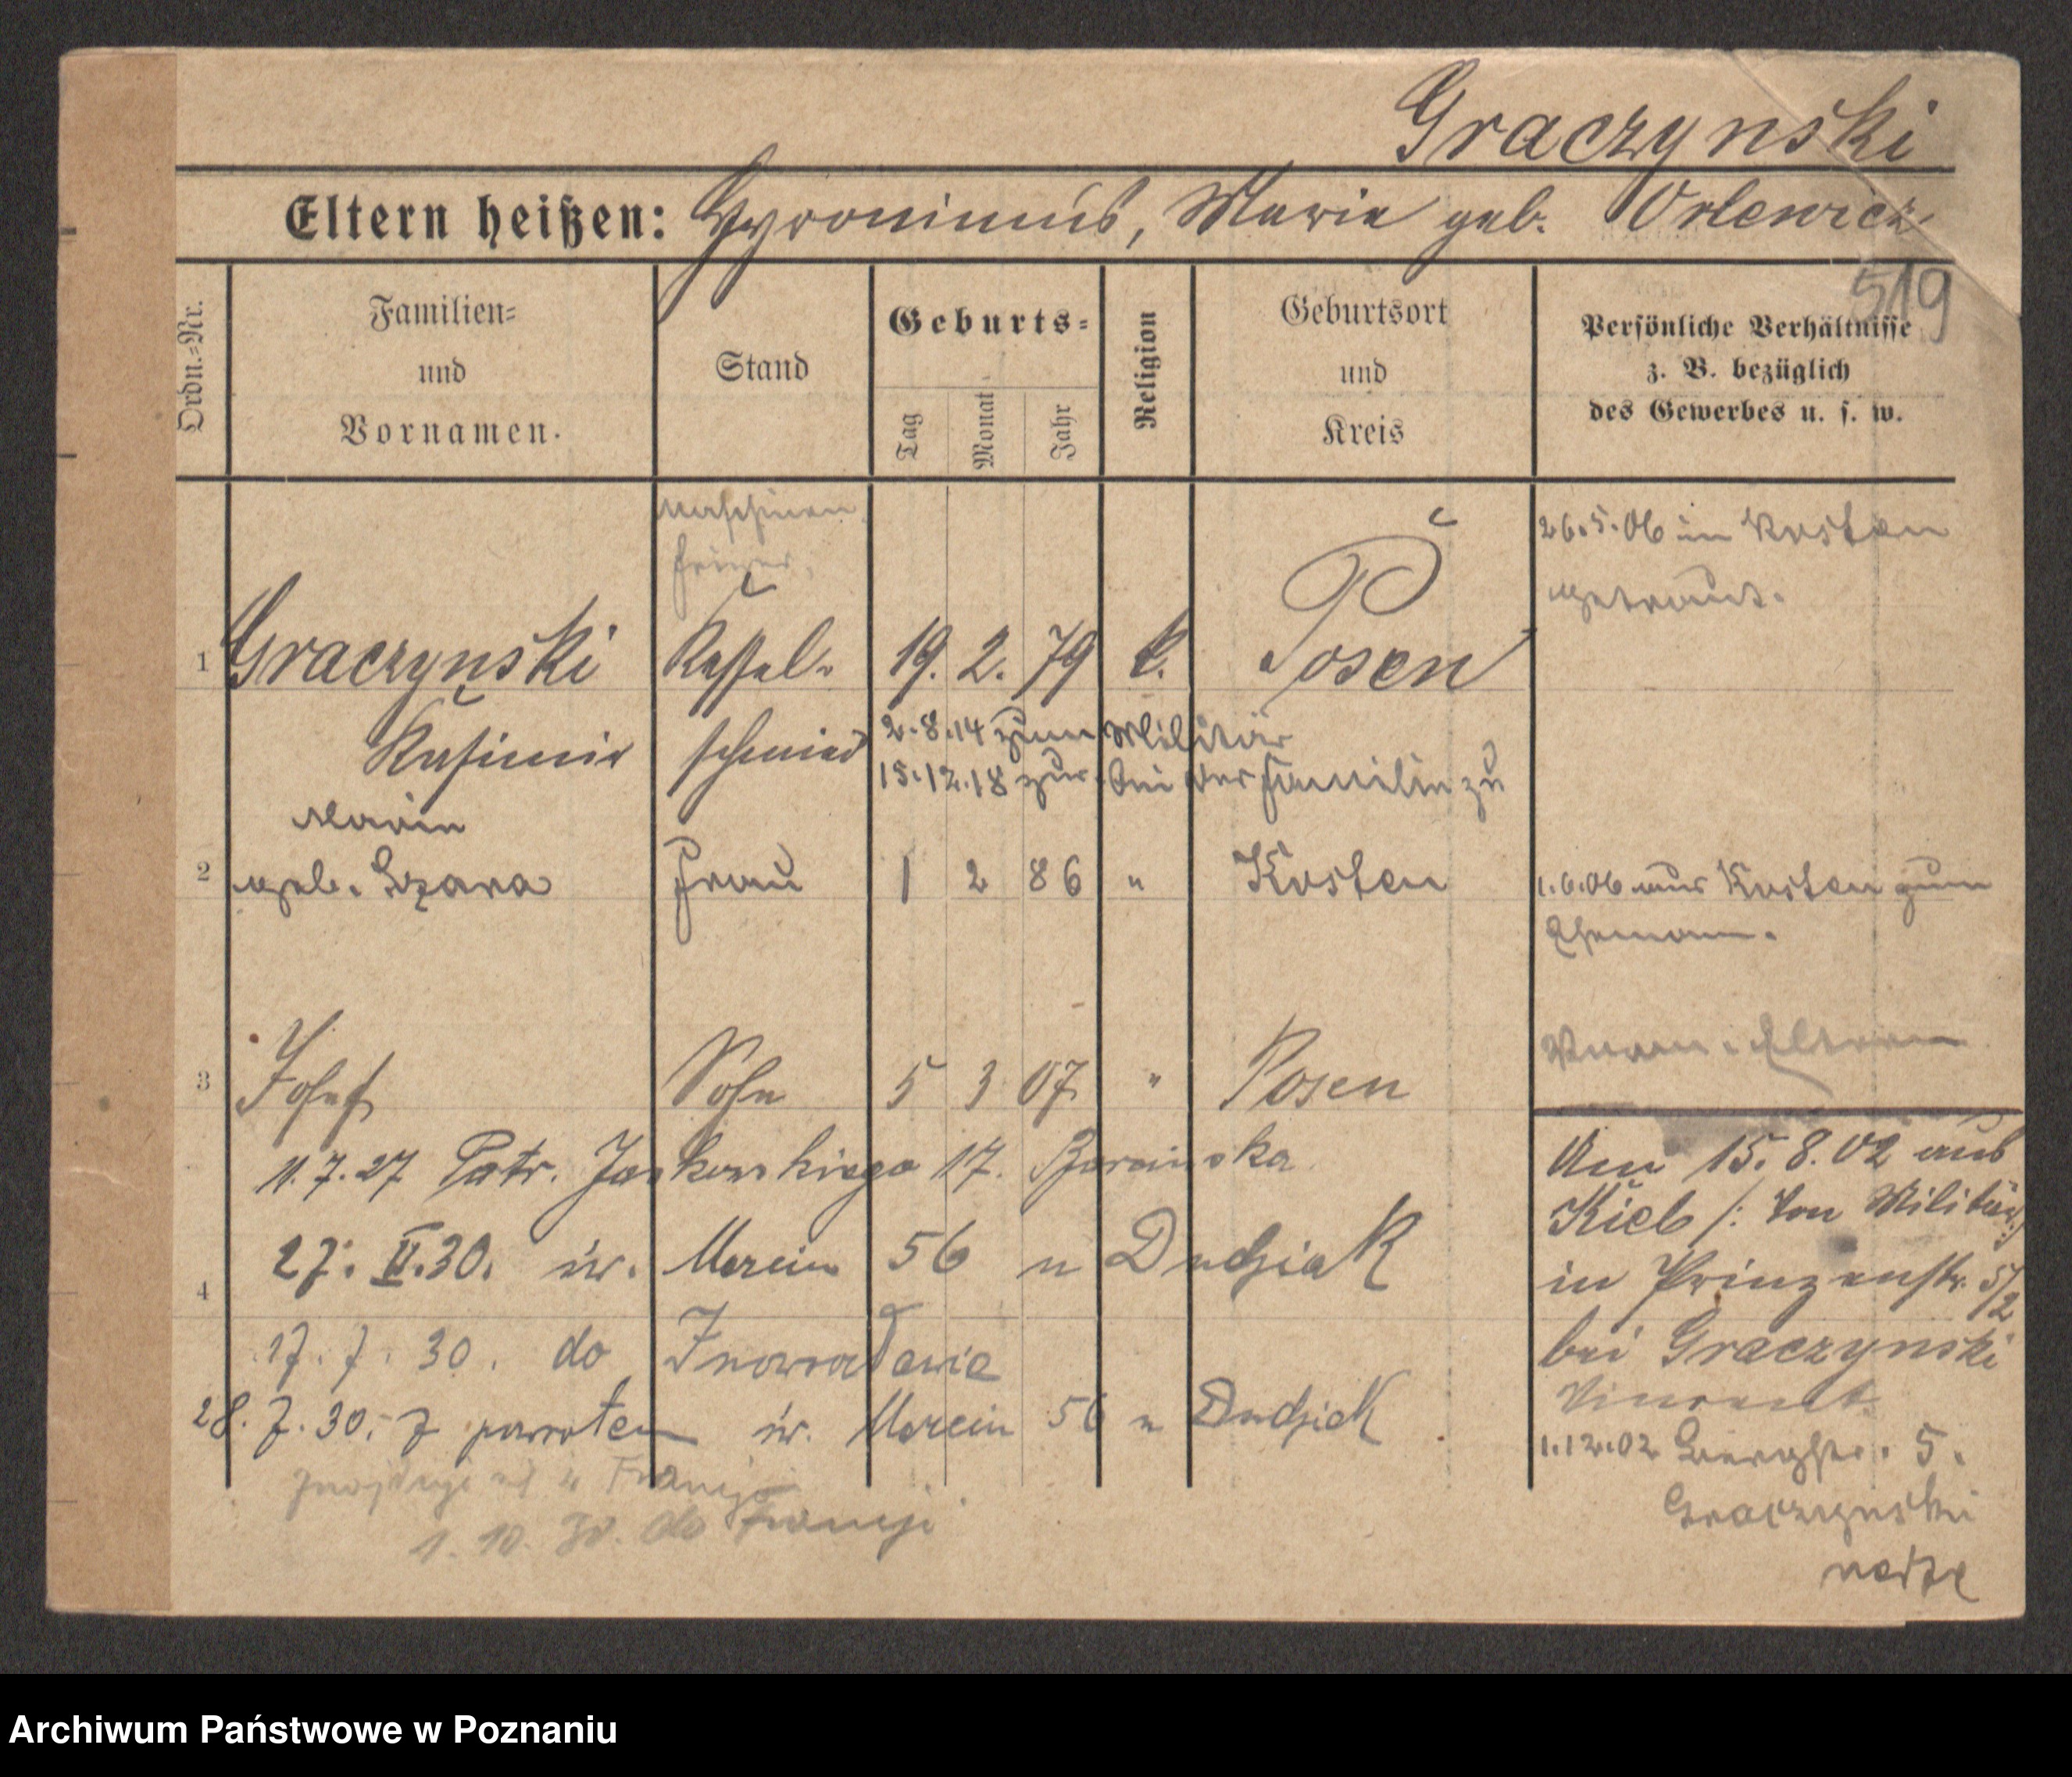 Graczynski
Eltern heißen: Hyronimus, Marie geb. Orlewicz
519
Ordn.-Nr.
Familien- und Vornamen.
Stand
Geburts-
Tag
Monat
Jahr
Religion
Geburtsort und Kreis
Persönliche Verhältnisse z. B. bezüglich des Gewerbes u. s. w.
Maschinen
26.5.06 in Kosten
getraut.
1 Graczynski Kessel- 19. 2. 79 k. Posen
Kasimir schmied 2.8.14 zum Militär
15.12.18 zur. bei der Familie zu
Marie
2 geb. Szara Frau 1 2 86 " Kosten 1.6.06 aus Kosten zum
Ehemann.
Eltern
3 Josef Sohn 5 3 07 " Posen
11.7.27 Patr. Jackowskiego 17.
Am 15.8.02 aus
Kiel /: von Militär :/
27. II.30. św. Marcin 56 u Dudziak
in Prinzenstr. 5/2
4
17.7.30. do Inowrocławia
bei Graczynski
Vincent
28.7.30. z powrotem św. Marcin 56 u Dudziak
1.12.02 Bergstr. 5.
Graczynski
1. 10. 30. do Francji
Archiwum Państwowe w Poznaniu